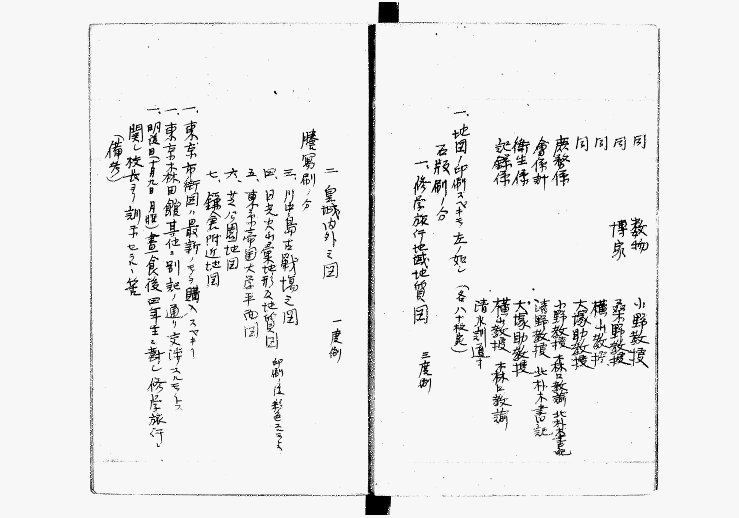 同 数物 小野教授
同 博家 桑野教授
同 横山教授
同 大塚助教授
庶務係 小野教授 森口教諭 北朴木書記
會計係 淺野教授 北朴木書記
衛生係 大塚助教授
記録係 横山教授 森口教諭
清水訓導
一、地図ノ印刷スベキモノ左ノ如シ(各八十枚宛)
石版刷ノ分
一、修学旅行地域地質図 三度刷
二 皇城内外之図 一度刷
謄寫刷ノ分
三、川中島古戦場之図
四、日光火山彙地形及地質図 印刷ノ後彩色スルモノ
五、東京帝国大学平面図
六、芝公園地図
七、鎌倉附近地図
一、東京市街図ハ最新ノモノヲ購入スベキコト
一、東京森田館其他ニ別記ノ通リ交渉スルコト
一、明後日(十月九日月曜)晝食後四年生ニ對シ修学旅行ニ
関シ校長ヨリ訓示セラルヽ筈
(備考)